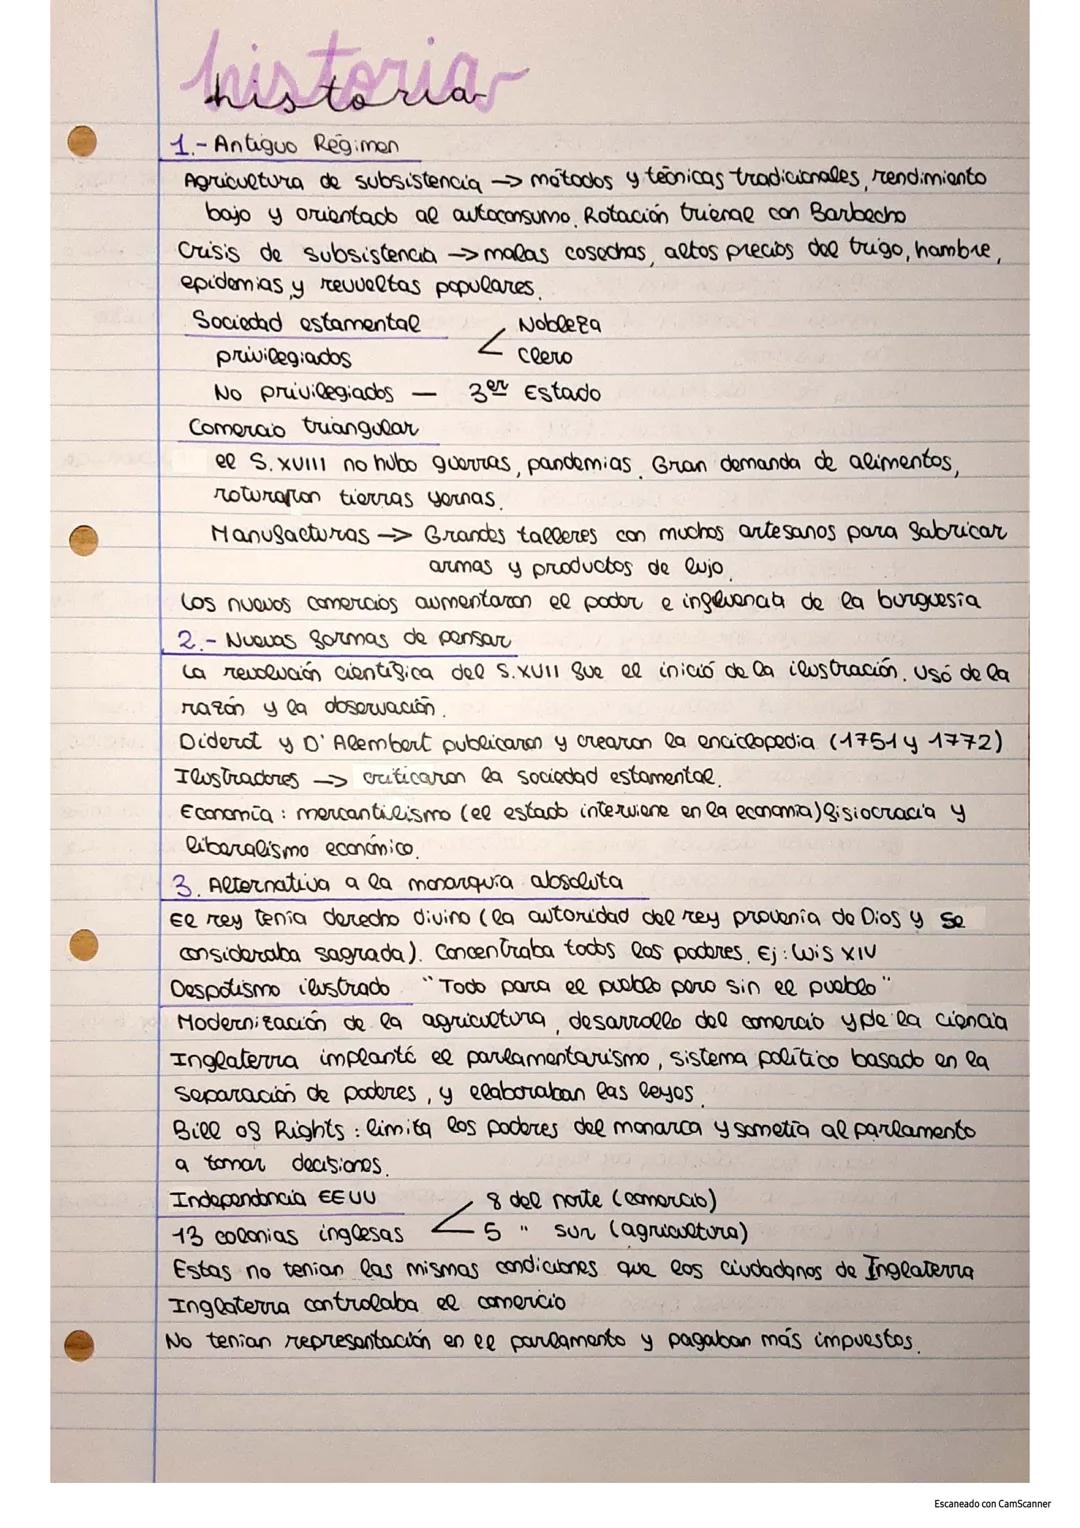 historia
historia
1.- Antiguo Régimen
Agricultura de subsistencia → métodos y técnicas tradicionales, rendimiento
bajo y orientado al autoconsumo. Rotación trienal con Barbecho
Crisis de subsistencia → malas cosechas, altos precios del trigo, hambre,
epidemias y revueltas populares.
Sociedad estamental
Nobleza
privilegiados < Clero
No privilegiados — 3er Estado
Comercio triangular
el S. XVIII no hubo guerras, pandemias. Gran demanda de alimentos,
roturaron tierras yermas.
Manufacturas → Grandes talleres con muchos artesanos para fabricar
armas y productos de lujo.
Los nuevos comercios aumentaron el poder e influencia de la burguesía
2.- Nuevas formas de pensar
La revolución científica del S. XVII fue el inició de la ilustración. Usó de la
razón y la observación.
Diderot y D'Alembert publicaron y crearon la enciclopedia (1751 y 1772)
Ilustradores → criticaron la sociedad estamental.
Economía: mercantilismo (el estado interviene en la economía) fisiocracia y
liberalismo económico.
3. Alternativa a la monarquía absoluta
El rey tenía derecho divino (la autoridad del rey provenía de Dios y se
consideraba sagrada). Concentraba todos los poderes. Ej: Luis XIV
Despotismo ilustrado "Todo para el pueblo pero sin el pueblo"
Modernización de la agricultura, desarrollo del comercio y de la ciencia
Inglaterra implantó el parlamentarismo, sistema político basado en la
separación de poderes, y elaboraban las leyes.
Bill of Rights: limita los poderes del monarca y sometía al parlamento
a tomar decisiones.
Independencia EEUU
8 del norte (comercio)
13 colonias inglesas < 5 " sur (agricultura)
Estas no tenían las mismas condiciones que los ciudadanos de Inglaterra
Inglaterra controlaba el comercio
No tenían representación en el parlamento y pagaban más impuestos.
Escaneado con CamScanner